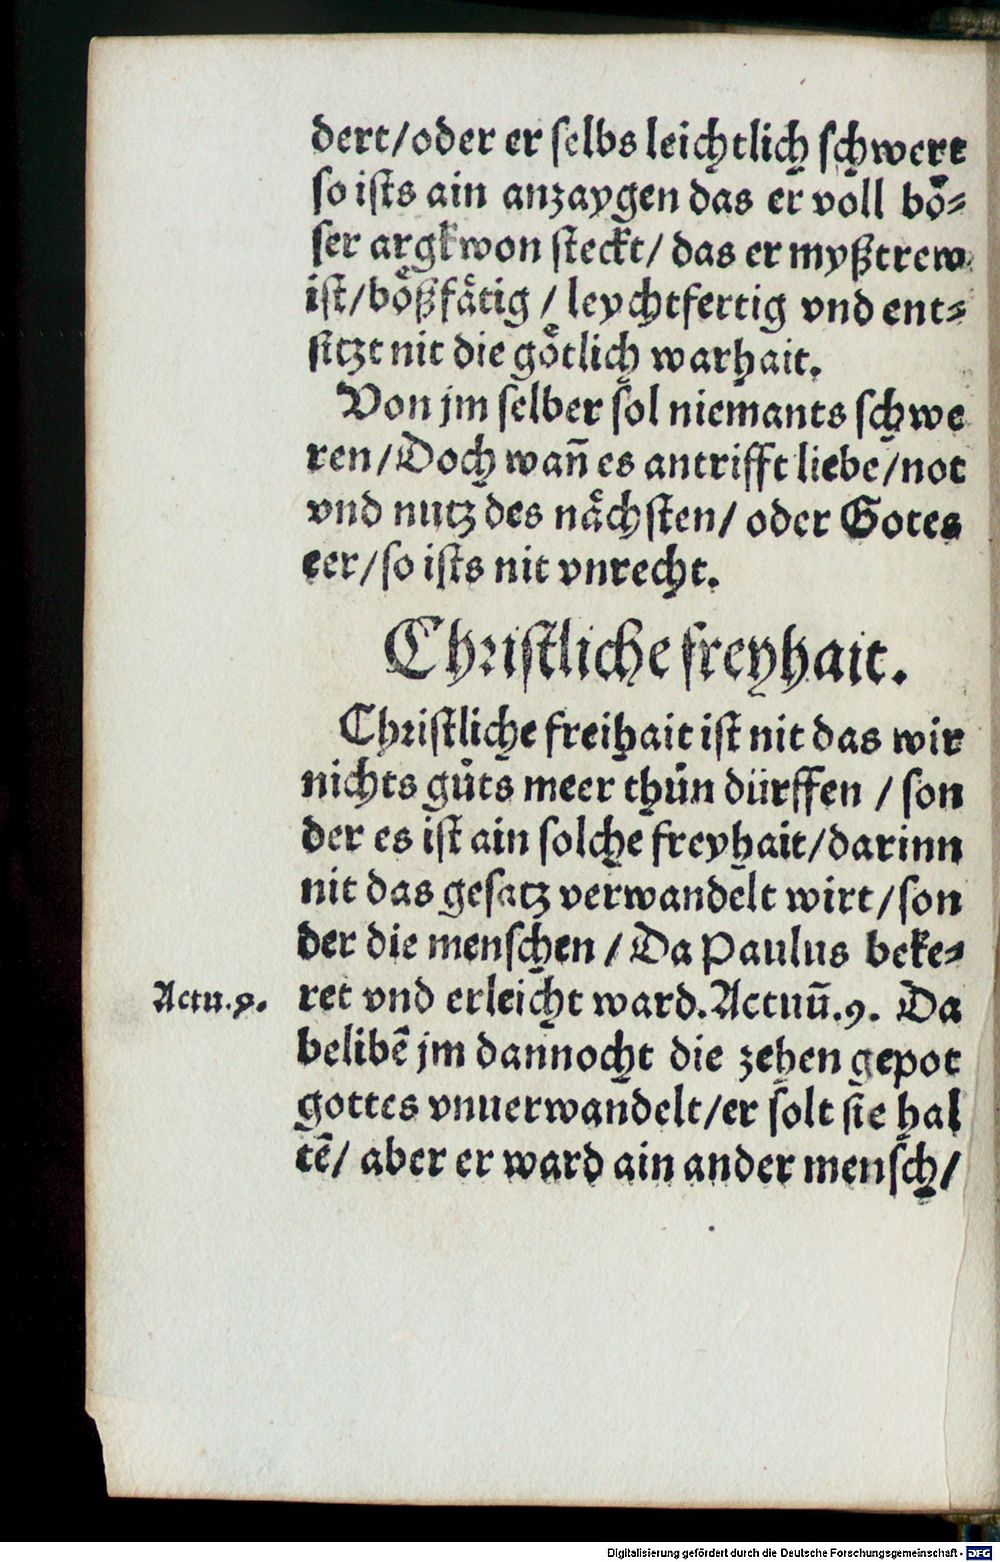 dert/oder er ſelbs leichtlich ſchwert
ſo iſts ain anzaygen das er voll boͤ⸗
ſer argkwon ſteckt/ das er myßtrew
iſt/boͤßfaͤtig / leychtfertig vnd ent⸗
ſitzt nit die goͤtlich warhait.
Von jm ſelber ſol niemants ſchwe
ren/Doch wañ es antrifft liebe/not
vnd nutz des naͤchſten/ oder Gotes
eer/ſo iſts nit vnrecht.
Chriſtliche freyhait.
Chriſtliche freihait iſt nit das wir
nichts guͤts meer thuͤn dürffen / ſon
der es iſt ain ſolche freyhait/darinn
nit das geſatz verwandelt wirt/ſon
der die menſchen / Da Paulus beke⸗
Actu.9.
ret vnd erleicht ward.Actuū.9. Da
belibē jm dannocht die zehen gepot
gottes vnuerwandelt/er ſolt ſie hal
tē/ aber er ward ain ander menſch/
Digitalisierung gefördert durch die Deutsche Forschungsgemeinschaft - DFG